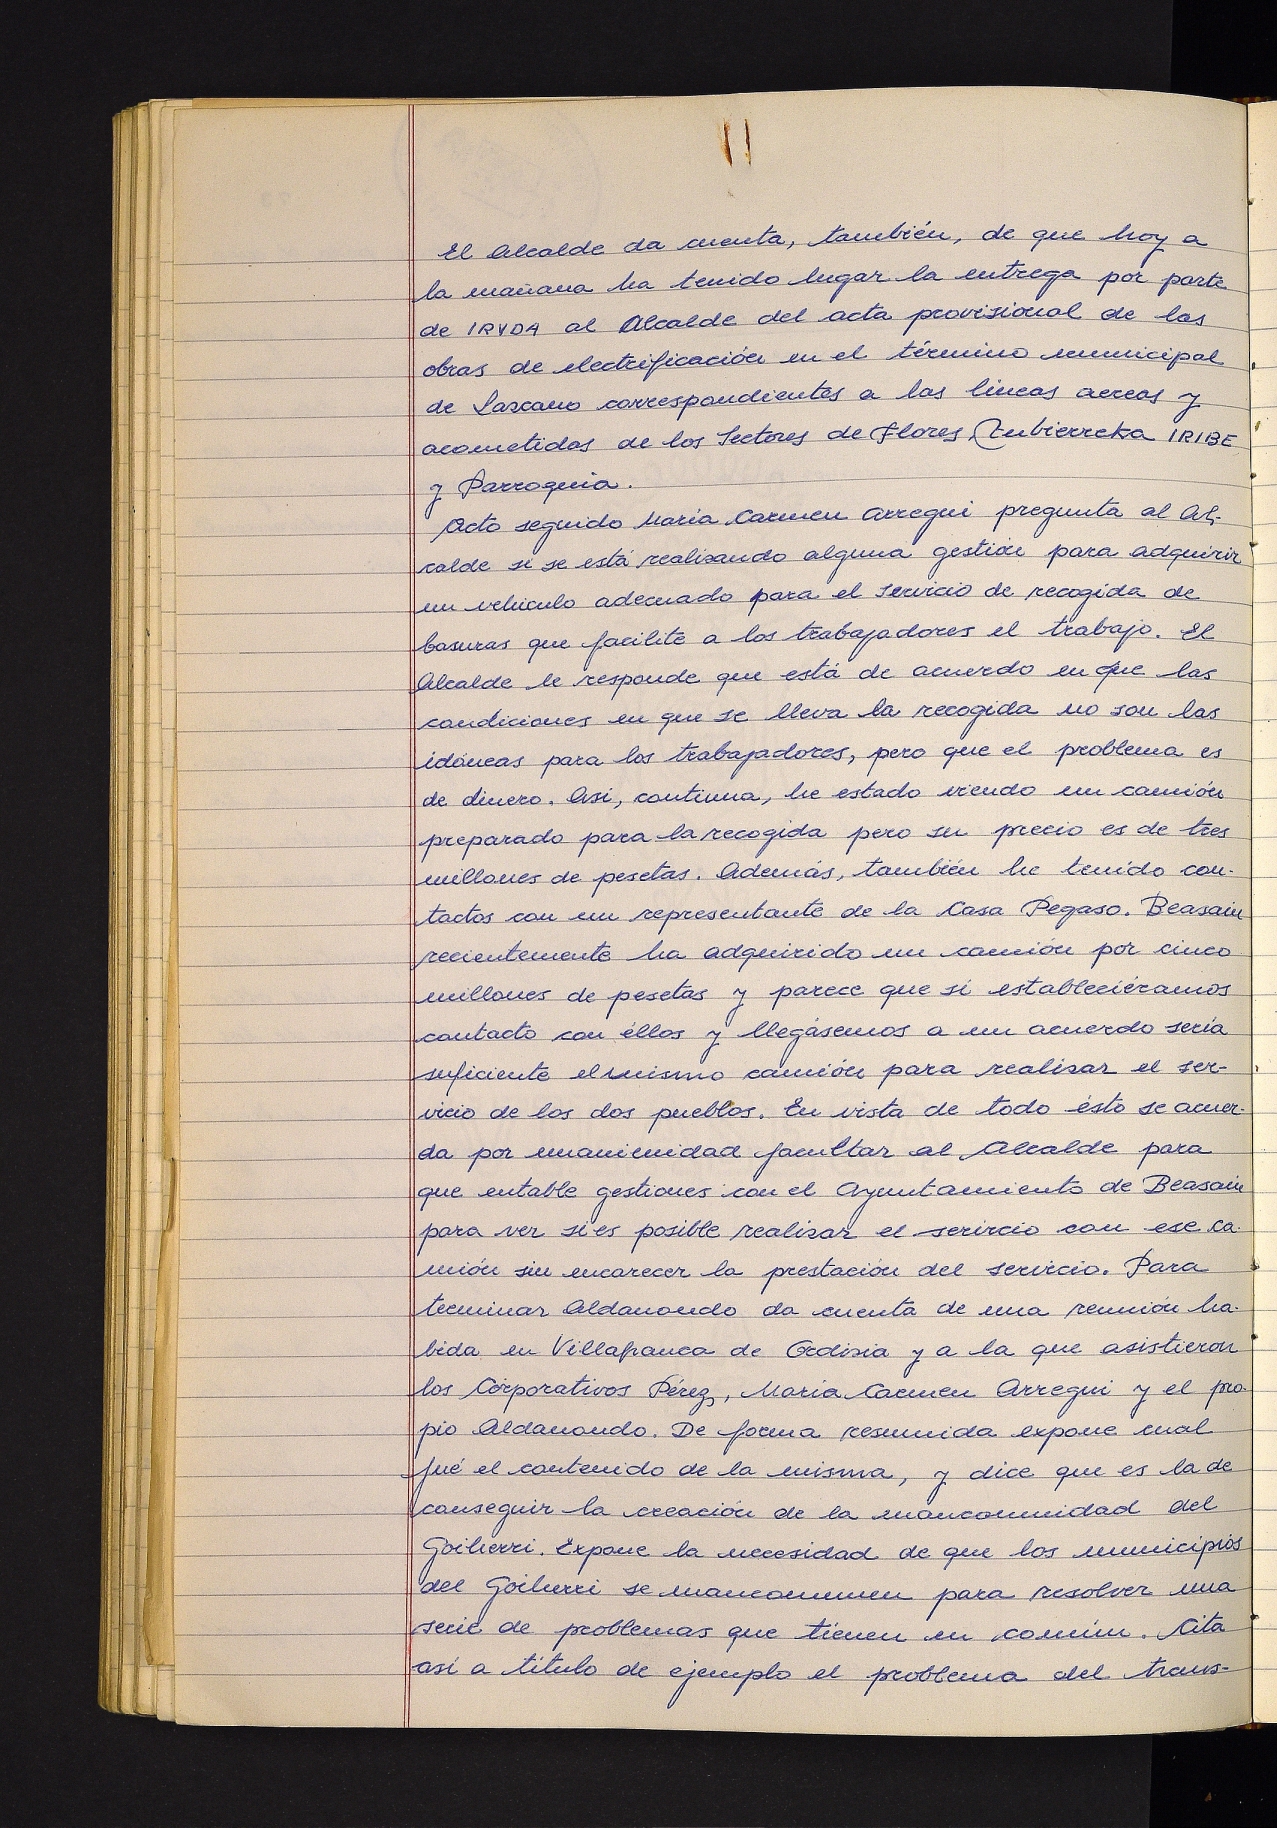 El Alcalde da cuenta, también, de que hoy a
la mañana ha tenido lugar la entrega por parte
de IRYDA al Alcalde del acta provisional de las
obras de electrificación en el término municipal
de Lazcano correspondientes a las líneas aereas y
acometidas de los Sectores de Flores, Zubierreka IRIBE
y Parroquia.
Acto seguido María Carmen Arregui pregunta al Al-
calde si se está realizando alguna gestión para adquirir
un vehículo adecuado para el servicio de recogida de
basuras que facilite a los trabajadores el trabajo. El
Alcalde le responde que está de acuerdo en que las
condiciones en que se lleva la recogida no son las
idóneas para los trabajadores, pero que el problema es
de dinero. Asi, continua, he estado viendo un camión
preparado para la recogida pero su precio es de tres
millones de pesetas. Además, también he tenido con-
tactos con un representante de la Casa Pegaso. Beasain
recientemente ha adquirido un camión por cinco
millones de pesetas y parece que si estableciéramos
contacto con éllos y llegásemos a un acuerdo sería
suficiente el mismo camión para realizar el ser-
vicio de los dos pueblos. En vista de todo ésto se acuer-
da por unanimidad facultar al Alcalde para
que entable gestiones con el Ayuntamiento de Beasain
para ver si es posible realizar el serircio con ese ca-
mión sin encarecer la prestación del servicio. Para
terminar Aldanondo da cuenta de una reunión ha-
bida en Villafranca de Ordizia y a la que asistieron
los Córporativos Pérez, María Carmen Arregui y el pro-
pio Aldanondo. De forma resumida expone cual
fué el contenido de la misma, y dice que es la de
conseguir la creación de la mancomunidad del
Goiherri. Expone la necesidad de que los municipios
del Goiherri se mancomunen para resolver una
serie de problemas que tienen en común. Cita
así a título de ejemplo el problema del trans-